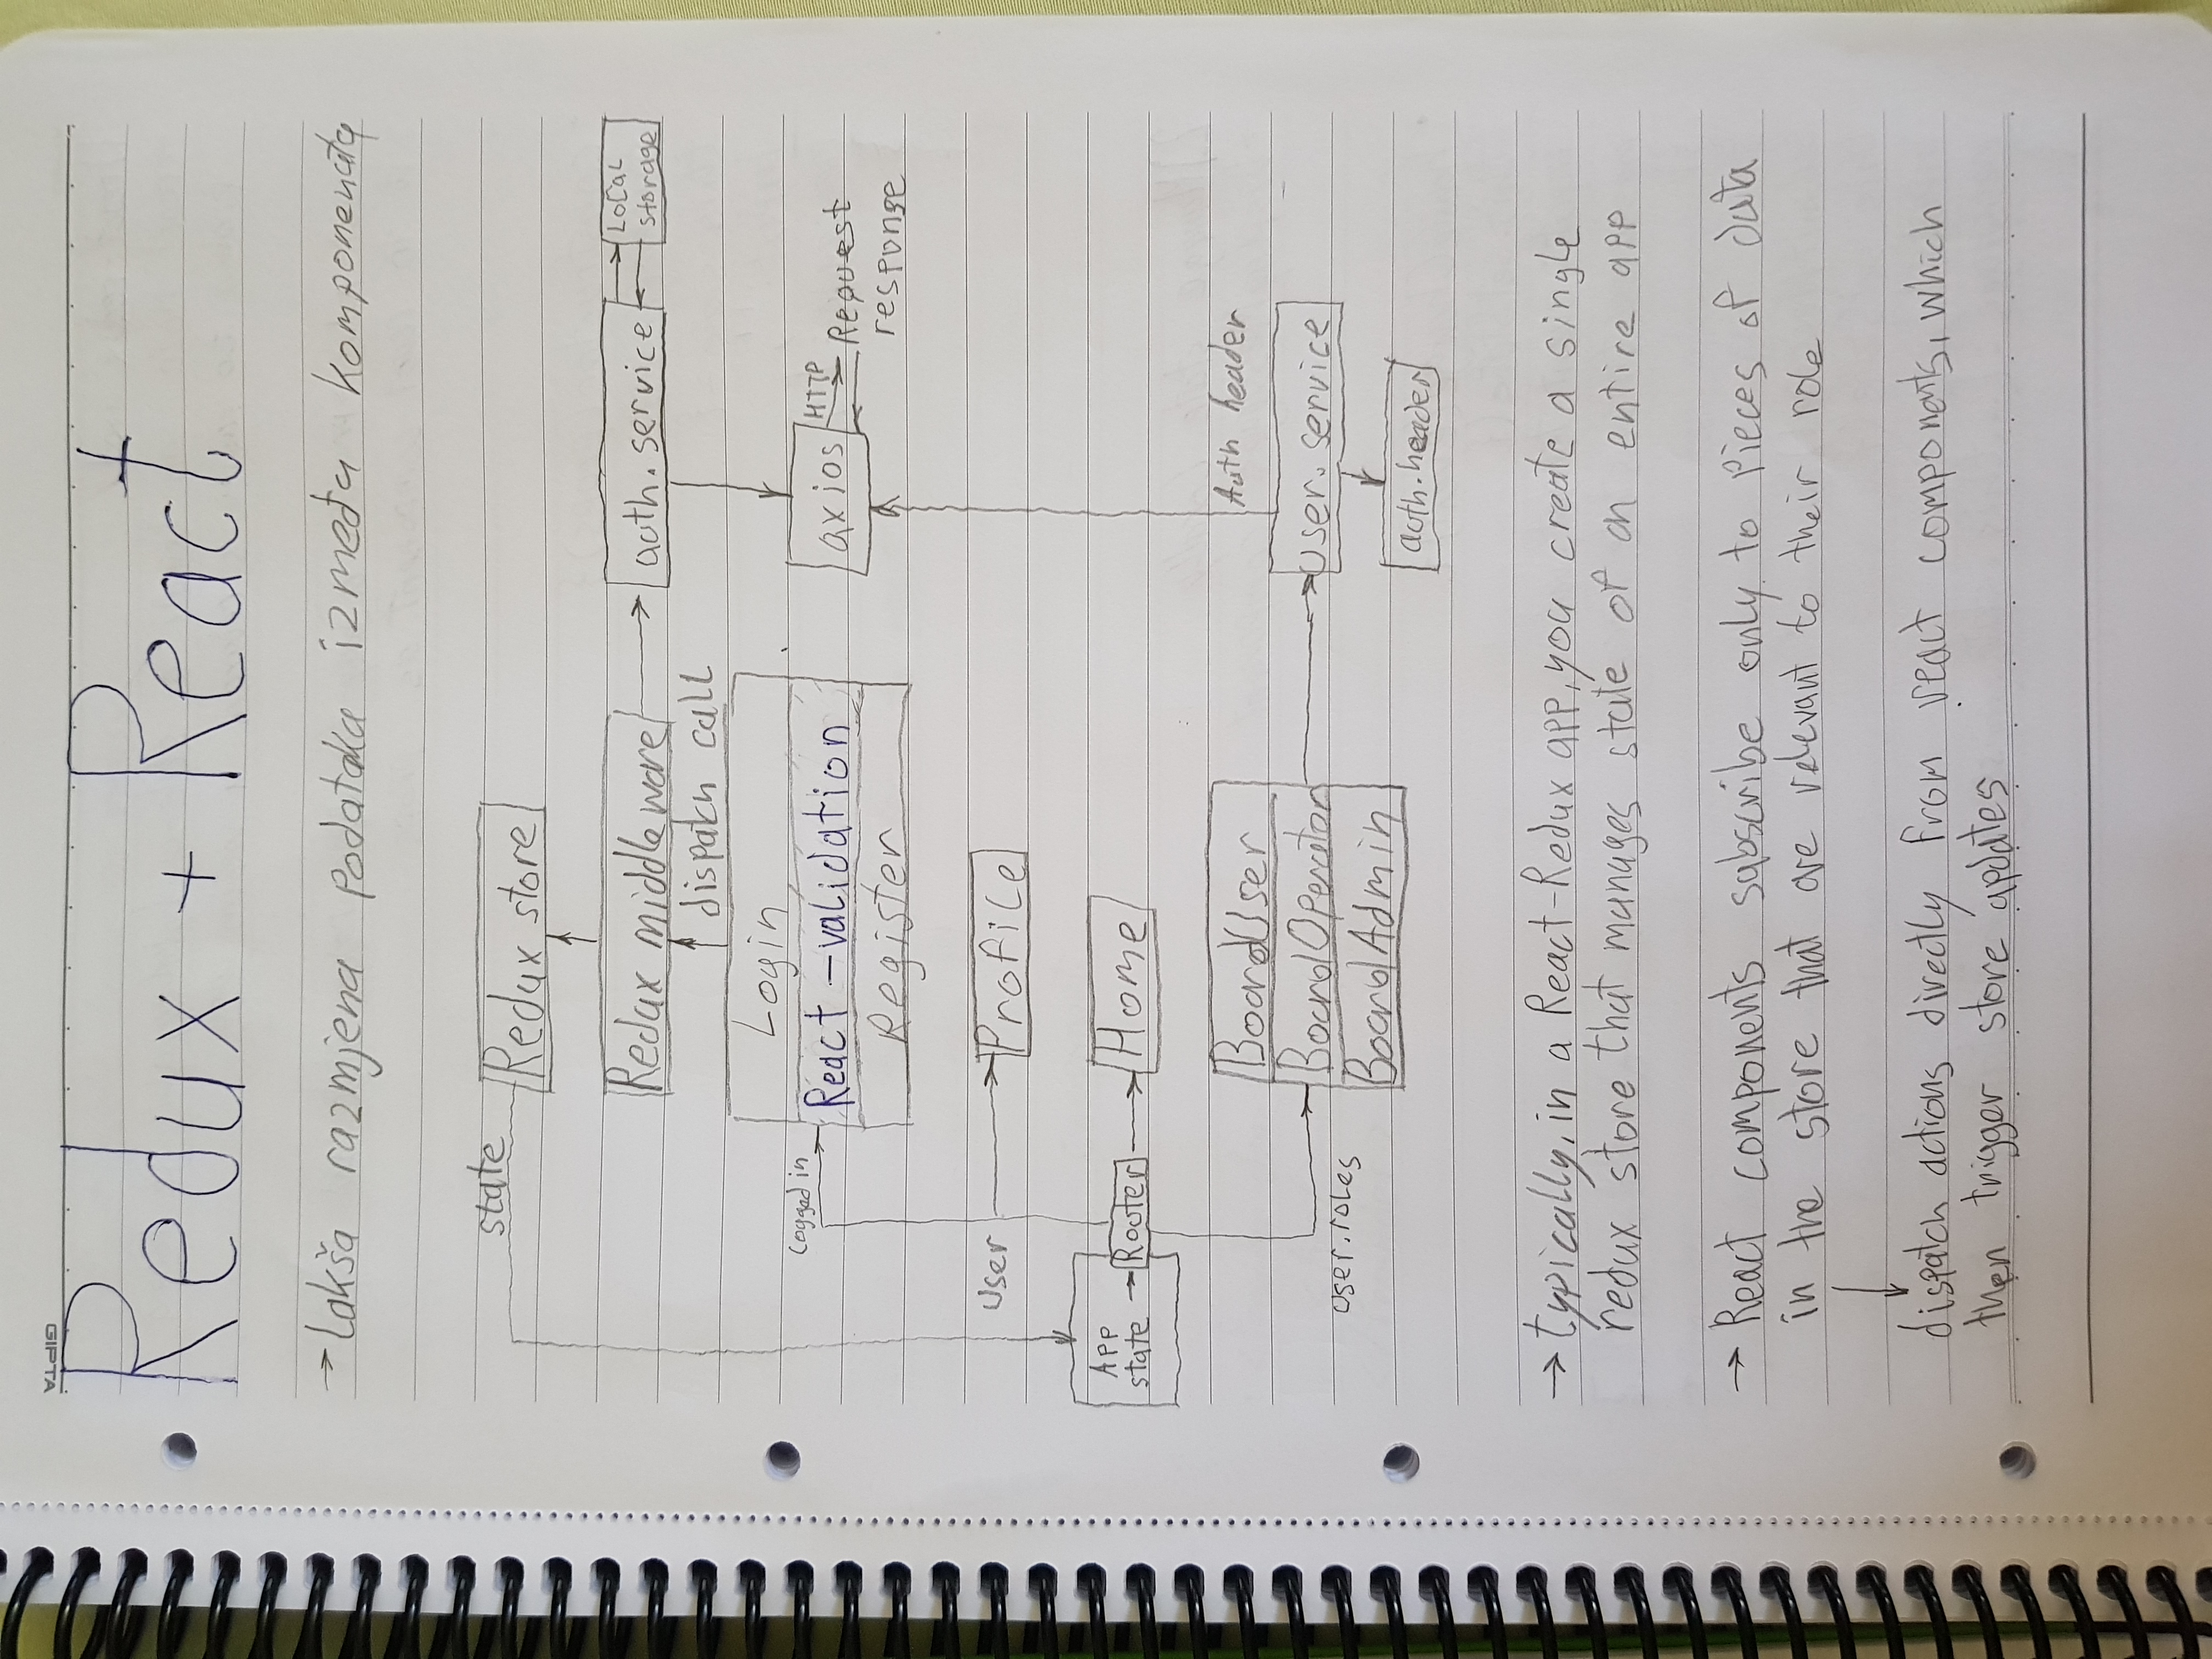 GIPTA
Redux + React
→ Lakša razmjena podataka između komponenata
state
Redux store
Redux middleware
auth.service
Local
storage
dispatch call
Login
Logged in
React-validation
axios
HTTP
Request
response
Register
User
Profile
App
state
Router
Home
BoardUser
Auth header
BoardOperator
user.service
user.roles
BoardAdmin
auth.header
→ typically, in a React-Redux app, you create a single
redux store that manages state of an entire app
→ React components subscribe only to pieces of data
in the store that are relevant to their role
dispatch actions directly from react components, which
then trigger store updates